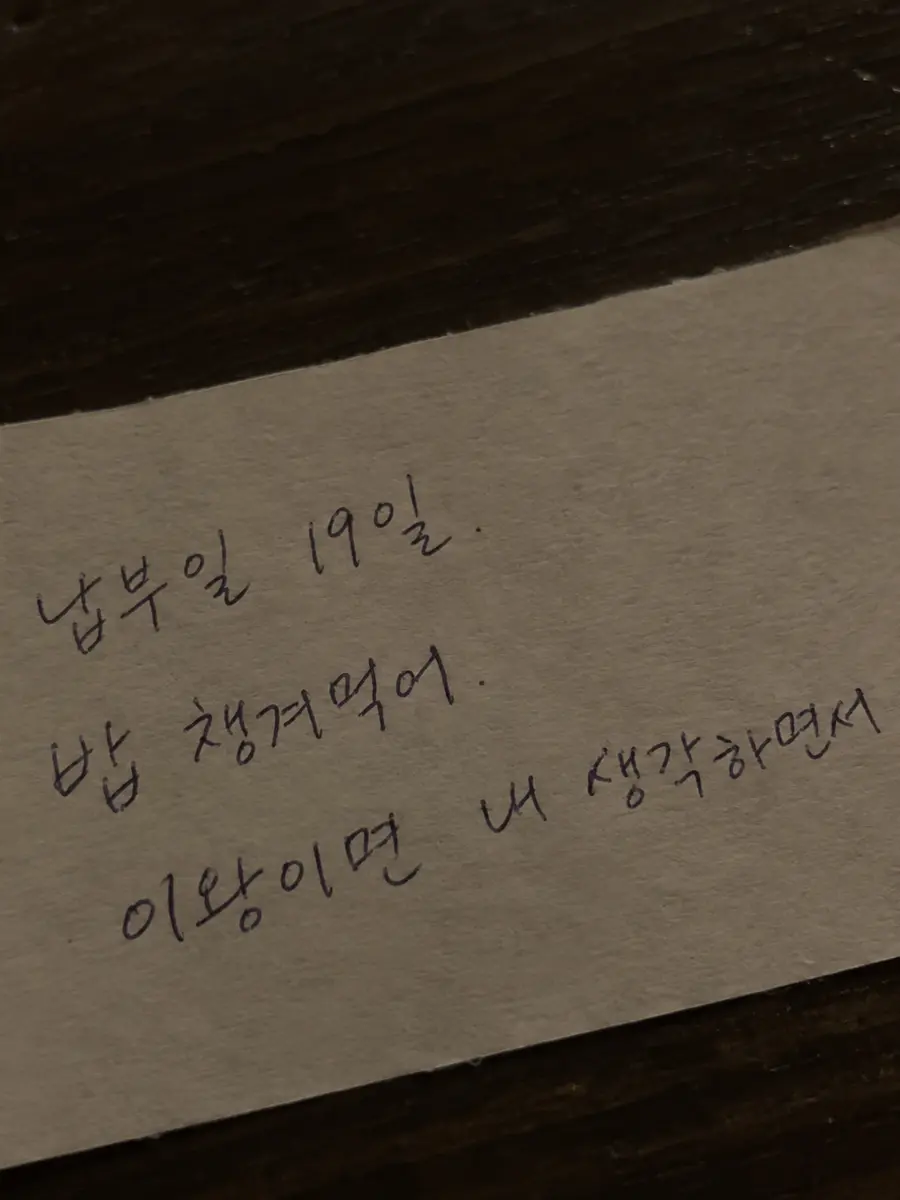 납부일 19일.
밥 챙겨먹어.
이왕이면 내 생각하면서